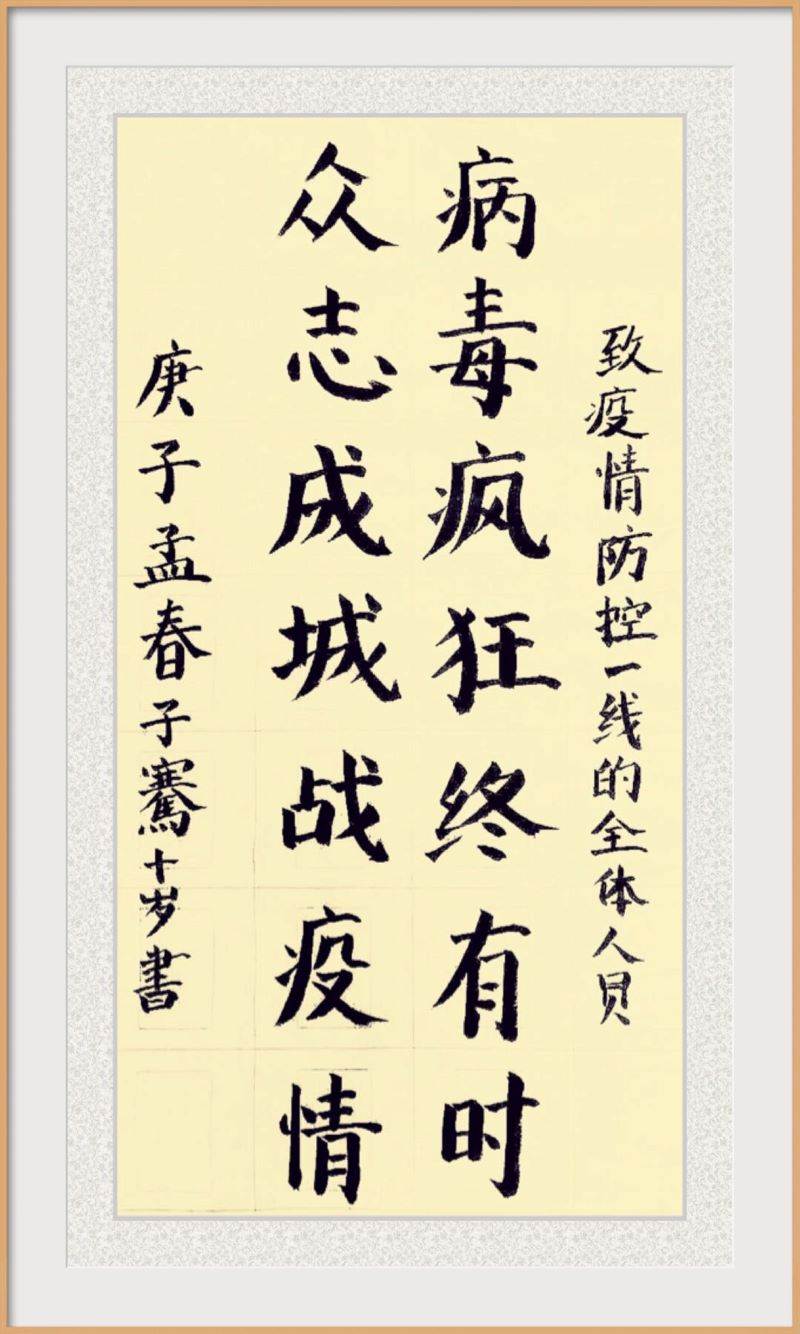 致疫情防控一线的全体人员
病毒疯狂终有时
众志成城战疫情
庚子孟春子骞十岁書